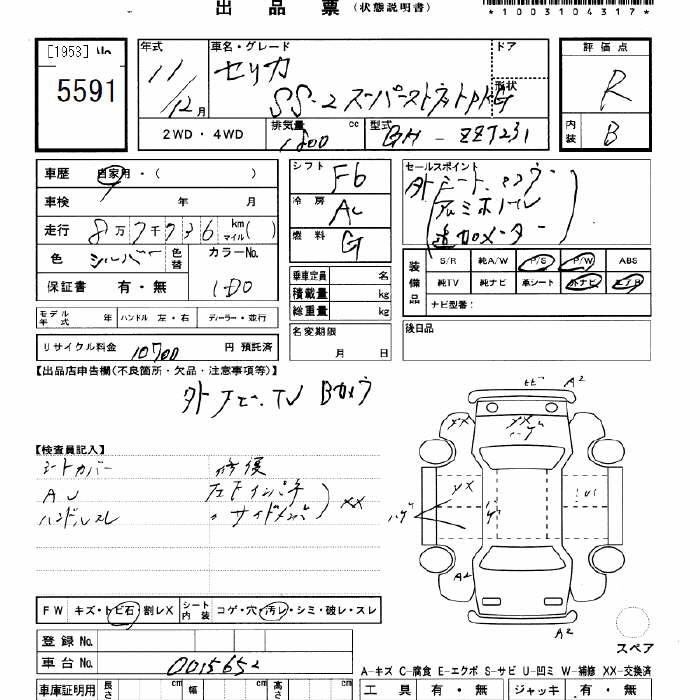 出 品 票 (状態説明書)
*1003104317*
[1953]
5591
年式 11/12月
車名・グレード セリカ
SS-2
ドア
形状
2WD・4WD
排気量 1800 cc
型式 GH-ZZT231
評価点 R
内装 B
車歴 自家用・( )
車検 年 月
走行 8万7千736 km マイル( )
色 シルバー 色替 カラーNo. 1D0
保証書 有・無
モデル年式 年 ハンドル 左・右 ディーラー・並行
リサイクル料金 10700 円 預託済
シフト F6
冷房 AC
燃料 G
乗車定員 名
積載量 kg
総重量 kg
名変期限 月 日
セールスポイント
アルミホイール
追加メーター
装備品 S/R 純A/W P/S P/W ABS
純TV 純ナビ 革シート 外ナビ エアB
ナビ型番:
後日品
【出品店申告欄(不良箇所・欠品・注意事項等)】
外 ナビ・TV Bカメラ
【検査員記入】
シートカバー 修復
AW 左F インパネ
ハンドルスレ 〃 サイドメンバ XX
ハゲ
A2
XX
ハゲ
XX
ハゲ
A2
A2
スペア
FW キズ・トビ石・割レX シート内装 コゲ・穴・汚レ・シミ・破レ・スレ
登録 No.
車台 No. 0015652
A-キズ C-腐食 E-エクボ S-サビ U-凹ミ W-補修 XX-交換済
車庫証明用 長さ cm 幅 cm 高さ cm
工具 有・無 ジャッキ 有・無